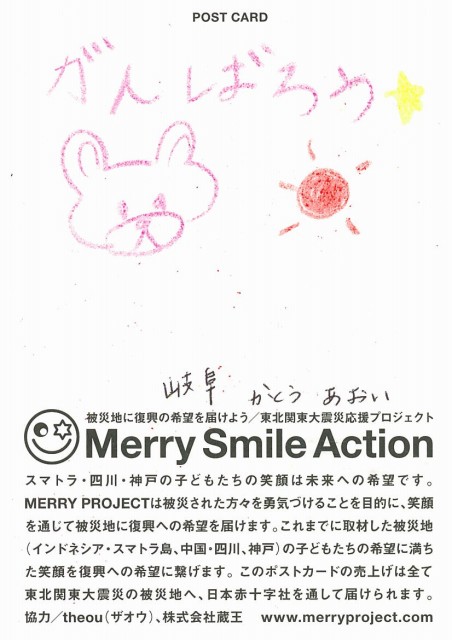 POST CARD
がんばろう
山岐阜 かとう あおい
被災地に復興の希望を届けよう／東北関東大震災応援プロジェクト
Merry Smile Action
スマトラ・四川・神戸の子どもたちの笑顔は未来への希望です。
MERRY PROJECTは被災された方々を勇気づけることを目的に、笑顔
を通じて被災地に復興への希望を届けます。これまでに取材した被災地
（インドネシア・スマトラ島、中国・四川、神戸）の子どもたちの希望に満ち
た笑顔を復興への希望に繋げます。このポストカードの売上げは全て
東北関東大震災の被災地へ、日本赤十字社を通して届けられます。
協力／theou（ザオウ）、株式会社蔵王 www.merryproject.com